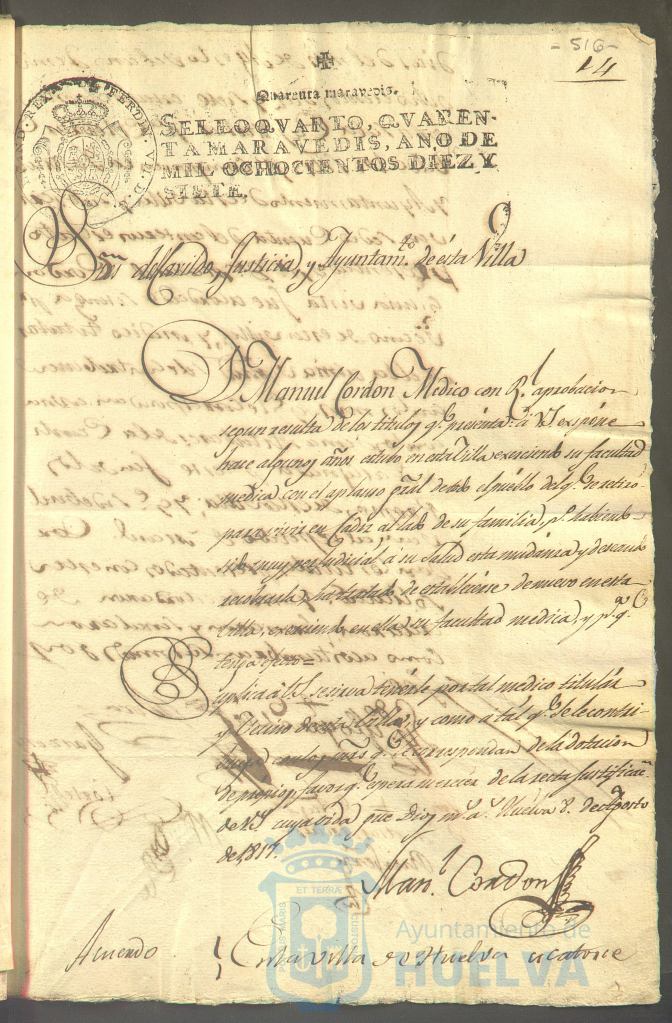 - 516 -
14
Quarenta maravedis.
SELLO QVARTO, QVAREN-
TA MARAVEDIS, AÑO DE
MIL OCHOCIENTOS DIEZ Y
SIETE.
Sres del Cavildo, Justicia, y Ayuntamto de esta Villa
Dn Manuel Cordon Medico con Rl aprobacion
segun resulta de los titulos qe presenta: a VS expone
hace algunos años estubo en esta Villa exerciendo su facultad
medica con el aplauso gral de todo el pueblo del qe se retiro
para vivir en Cadiz al lado de su familia, pr habiendo
sido muy perjudicial á su salud esta mudanza y deseando
recobrarla, ha tratado de establecerse de nuevo en esta
Villa, exerciendo en ella su facultad medica, y pa qe
tenga efecto =
Suplica á VS se sirva tenerle por tal medico titulár
y Vecino de esta Villa, y como a tal qe se le contri-
buya con los qe le correspondan de la dotacion
de propios, favor qe espera merecer de la recta justificacn
de VS cuya vida gue Dios ms as Huelva 8. de Agosto
de 1817.
Manl Cordon
Acuerdo
En la Villa de Huelva a catorce
PORTUS MARIS
ET TERRAE
CUSTODIA
Ayuntamiento de
HUELVA